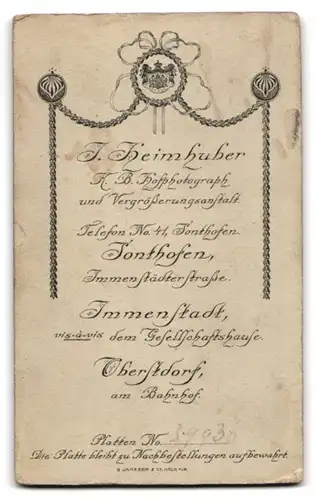 J. Heimhuber
K. B. Hofphotograph
und Vergrößerungsanstalt.
Telefon No. 41, Sonthofen.
Sonthofen,
Immenstädterstraße.
Immenstadt,
vis-à-vis dem Gesellschaftshause.
Oberstdorf,
am Bahnhof.
Platten No.
Die Platte bleibt zu Nachbestellungen aufbewahrt.